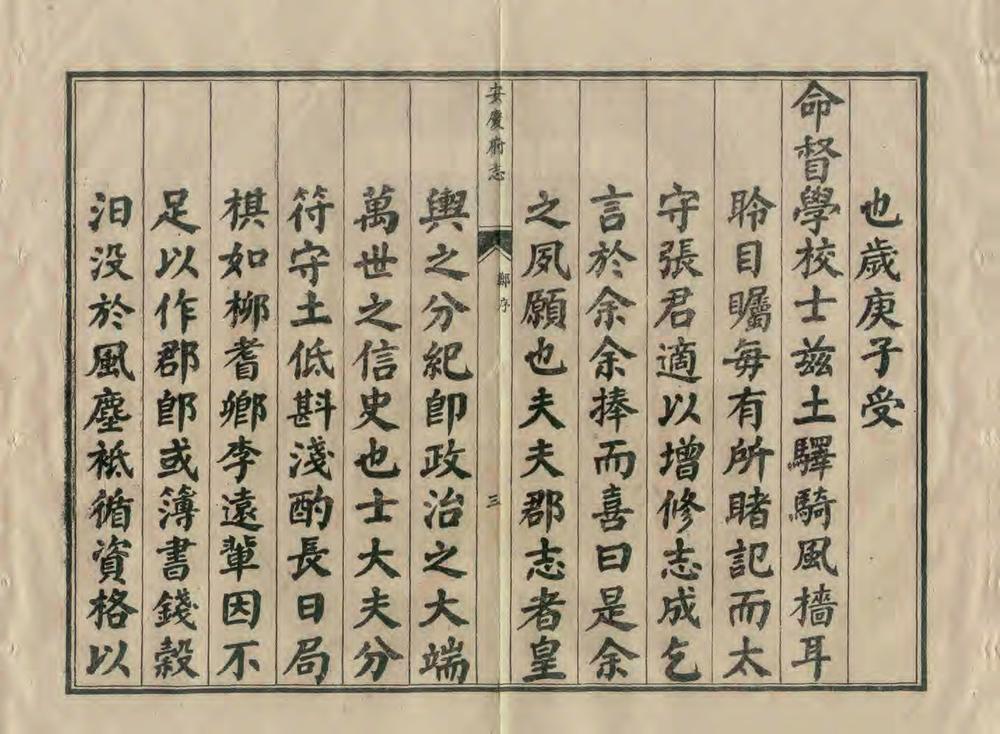 也歲庚子受
命督學校士兹土驛騎風檣耳
聆目矚每有所睹記而太
守張君適以增修志成乞
言於余余捧而喜曰是余
之夙願也夫夫郡志者皇
安慶府志
鄭序
三
輿之分紀卽政治之大端
萬世之信史也士大夫分
符守土低斟淺酌長日局
棋如柳耆卿李遠輩因不
足以作郡卽或簿書錢穀
汩没於風塵袛循資格以